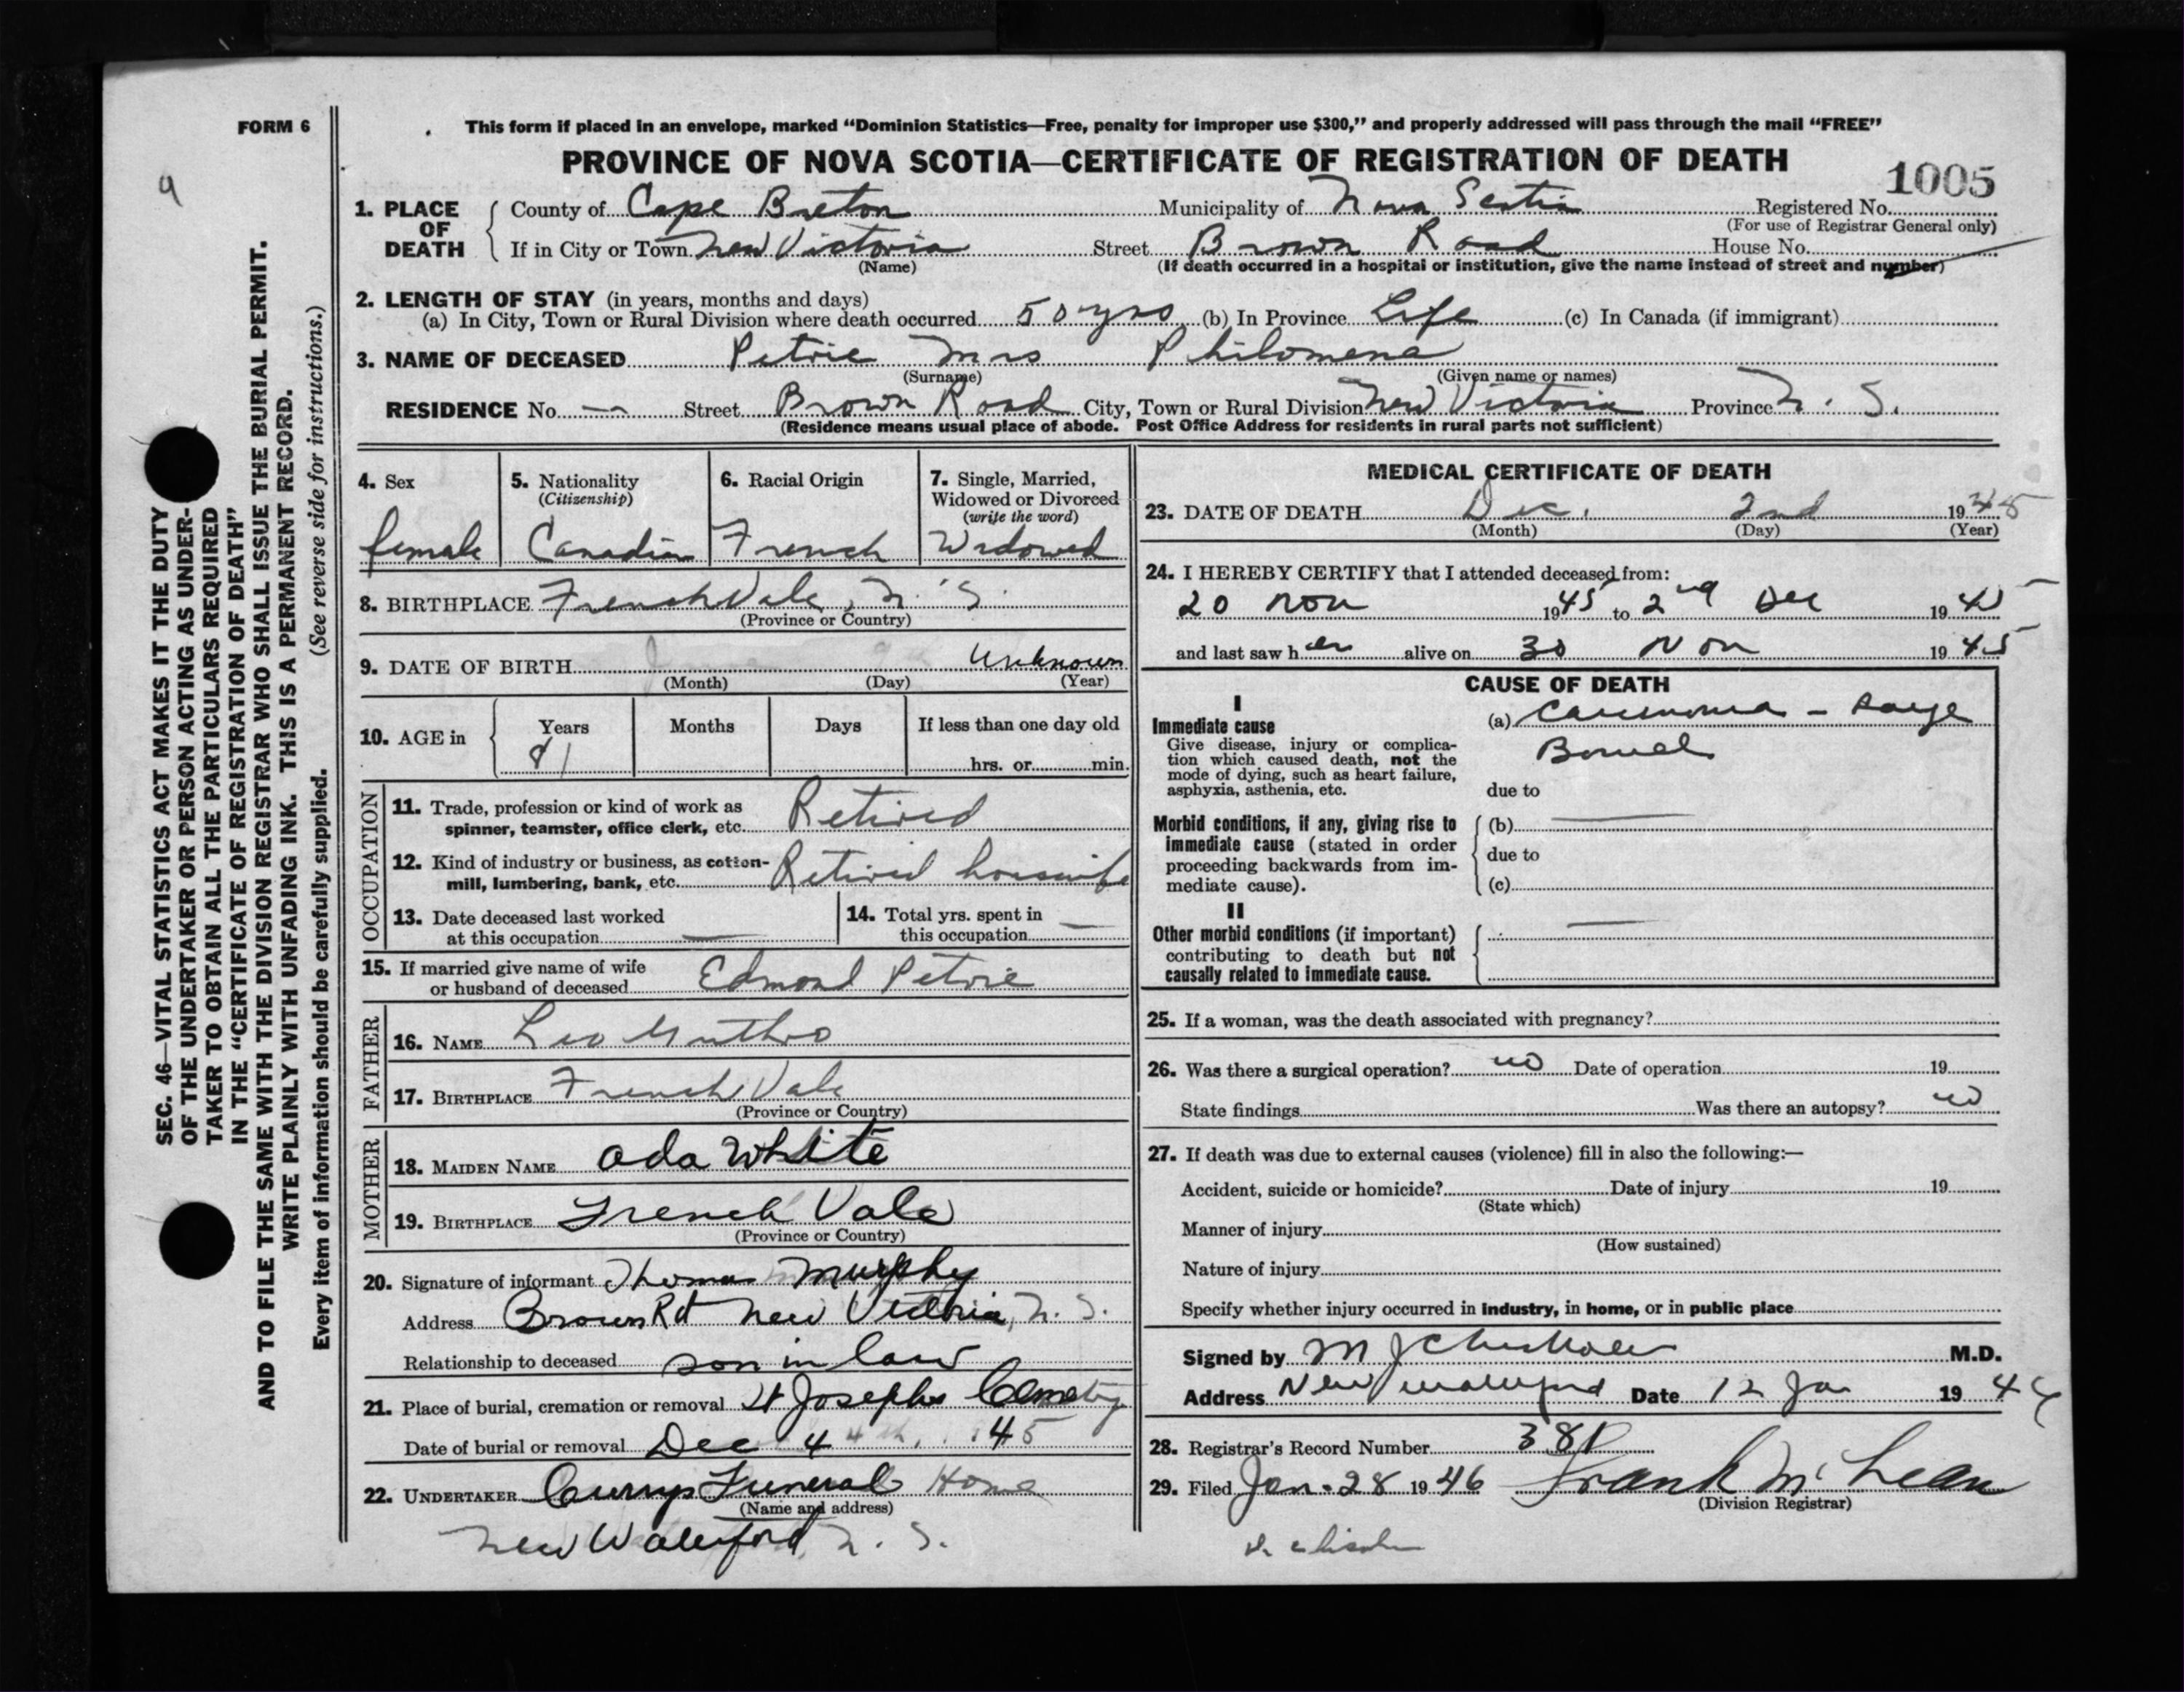 FORM 6
This form if placed in an envelope, marked “Dominion Statistics—Free, penalty for improper use $300,” and properly addressed will pass through the mail “FREE”
PROVINCE OF NOVA SCOTIA—CERTIFICATE OF REGISTRATION OF DEATH
1005
9
SEC. 46—VITAL STATISTICS ACT MAKES IT THE DUTY
OF THE UNDERTAKER OR PERSON ACTING AS UNDER-
TAKER TO OBTAIN ALL THE PARTICULARS REQUIRED
IN THE “CERTIFICATE OF REGISTRATION OF DEATH”
AND TO FILE THE SAME WITH THE DIVISION REGISTRAR WHO SHALL ISSUE THE BURIAL PERMIT.
WRITE PLAINLY WITH UNFADING INK. THIS IS A PERMANENT RECORD.
Every item of information should be carefully supplied. (See reverse side for instructions.)
1. PLACE OF DEATH County of Cape Breton Municipality of Nova Scotia Registered No.
(For use of Registrar General only)
If in City or Town New Victoria Street Brown Road House No.
(Name) (If death occurred in a hospital or institution, give the name instead of street and number)
2. LENGTH OF STAY (in years, months and days)
(a) In City, Town or Rural Division where death occurred 50 yrs (b) In Province Life (c) In Canada (if immigrant)
3. NAME OF DECEASED Petrie Mrs Philomena
(Surname) (Given name or names)
RESIDENCE No. — Street Brown Road City, Town or Rural Division New Victoria Province N. S.
(Residence means usual place of abode. Post Office Address for residents in rural parts not sufficient)
4. Sex
female
5. Nationality
(Citizenship)
Canadian
6. Racial Origin
French
7. Single, Married,
Widowed or Divorced
(write the word)
Widowed
8. BIRTHPLACE French Vale, N. S.
(Province or Country)
9. DATE OF BIRTH unknown
(Month) (Day) (Year)
10. AGE in Years Months Days If less than one day old
81 hrs. or min.
OCCUPATION
11. Trade, profession or kind of work as
spinner, teamster, office clerk, etc. Retired
12. Kind of industry or business, as cotton-
mill, lumbering, bank, etc. Retired housewife
13. Date deceased last worked
at this occupation —
14. Total yrs. spent in
this occupation —
15. If married give name of wife
or husband of deceased Edmond Petrie
FATHER
16. NAME Leo Guthro
17. BIRTHPLACE French Vale
(Province or Country)
MOTHER
18. MAIDEN NAME Ada White
19. BIRTHPLACE French Vale
(Province or Country)
20. Signature of informant Thomas Murphy
Address Brown Rd New Victoria, N. S.
Relationship to deceased son in law
21. Place of burial, cremation or removal St Josephs Cemetry
Date of burial or removal Dec 4 45
22. UNDERTAKER Currys Funeral Home
(Name and address)
New Waterford, N. S.
MEDICAL CERTIFICATE OF DEATH
23. DATE OF DEATH Dec. 2nd 1945
(Month) (Day) (Year)
24. I HEREBY CERTIFY that I attended deceased from:
20 Nov 1945 to 2nd Dec 1945
and last saw her alive on 30 Nov 1945
CAUSE OF DEATH
I
Immediate cause
Give disease, injury or complica-
tion which caused death, not the
mode of dying, such as heart failure,
asphyxia, asthenia, etc.
(a) Carcinoma — Large
Bowel
due to
Morbid conditions, if any, giving rise to
immediate cause (stated in order
proceeding backwards from im-
mediate cause).
(b) —
due to
(c)
II
Other morbid conditions (if important)
contributing to death but not
causally related to immediate cause.
—
25. If a woman, was the death associated with pregnancy?
26. Was there a surgical operation? no Date of operation 19
State findings Was there an autopsy? no
27. If death was due to external causes (violence) fill in also the following:—
Accident, suicide or homicide? Date of injury 19
(State which)
Manner of injury
(How sustained)
Nature of injury
Specify whether injury occurred in industry, in home, or in public place
Signed by M J Chisholm M.D.
Address New Waterford Date 12 Jan 19
28. Registrar's Record Number 381
29. Filed Jan. 28 1946 Frank McLean
(Division Registrar)